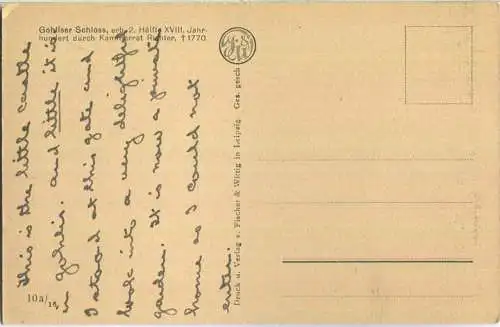 Gohliser Schloss, erb. 2. Hälfte XVIII. Jahr-
hundert durch Kammerrat Richter, † 1770.
This is the little castle
in Gohlis. and little it is
I stood at this gate and
look into a very delightful
garden. It is now a private
home so I could not
enter.
Druck u. Verlag v. Fischer & Wittig in Leipzig Ges. gesch.
10a/